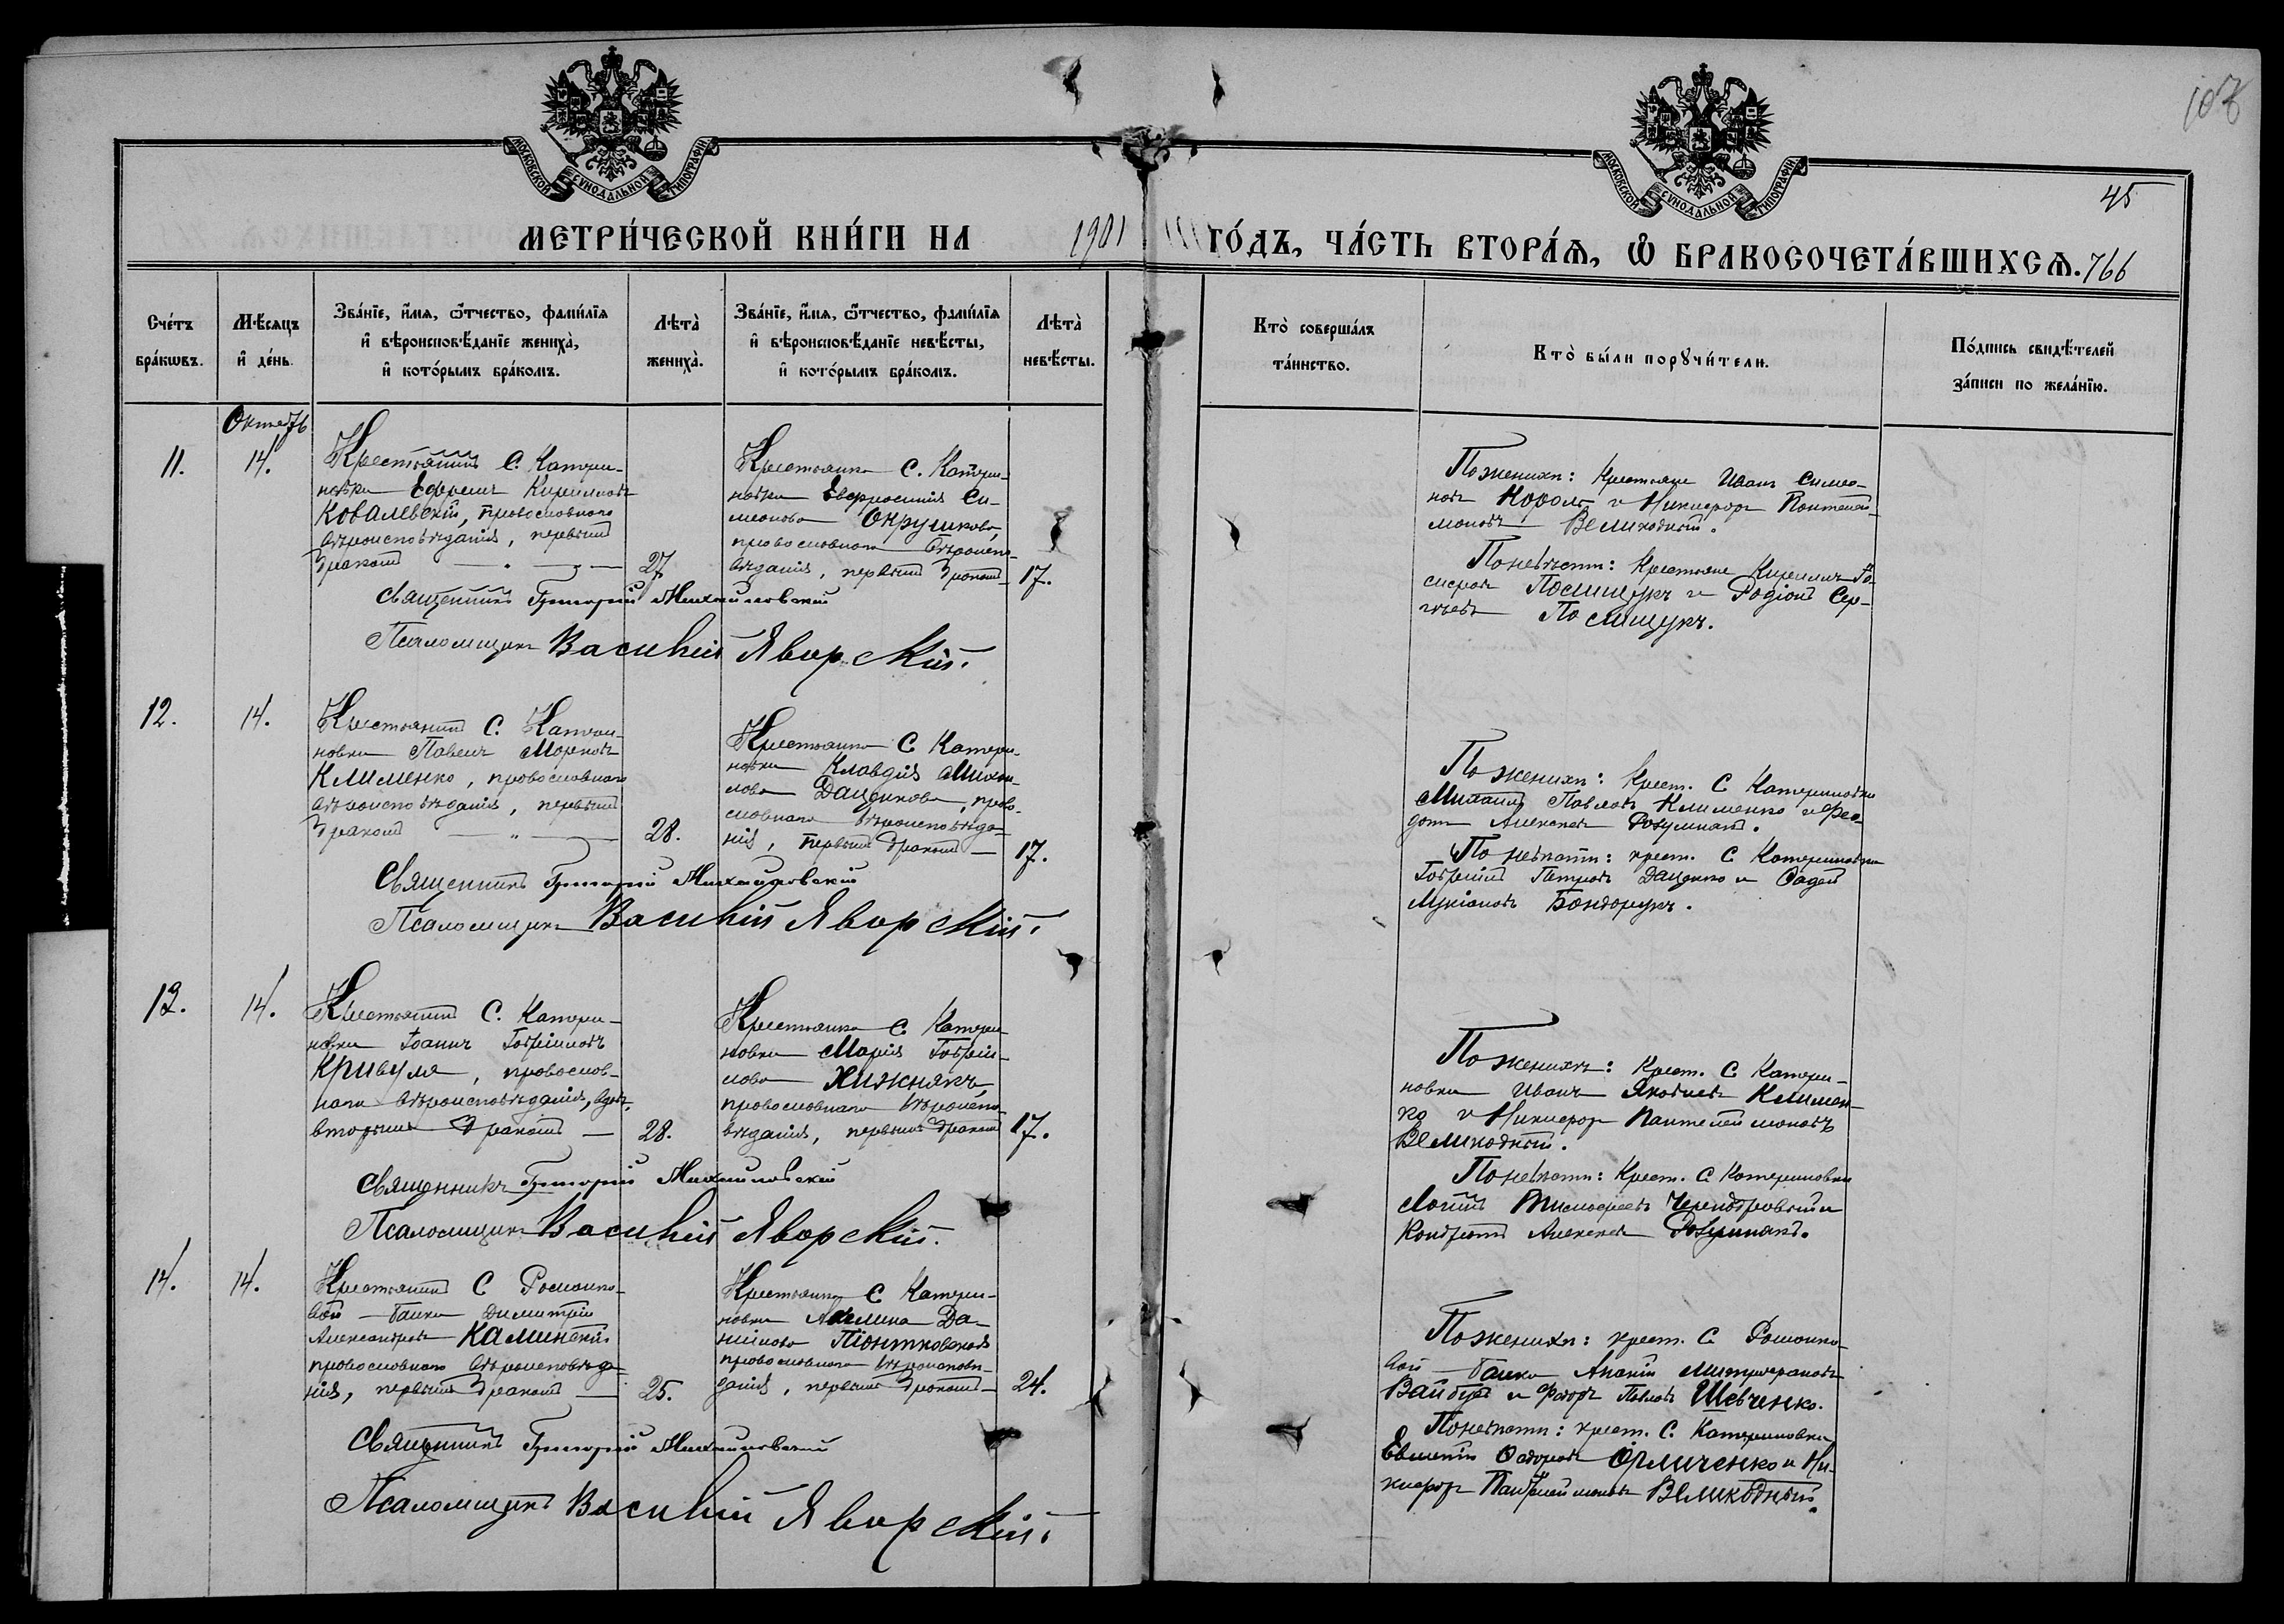 107
45
МОСКОВСКОЙ СУНОДАЛЬНОЙ ТИПОГРАФІИ
МОСКОВСКОЙ СУНОДАЛЬНОЙ ТИПОГРАФІИ
МЕТРИ́ЧЕСКОЙ КНИ́ГИ НА 1901 ГО́ДЪ, ЧА́СТЬ ВТОРА́Ѧ, Ѽ БРАКОСОЧЕТА́ВШИХСѦ. 766
Сче́тъ бра́кωвъ.
Мѣ́сяцъ и҆ де́нь.
Зва́нїе, и҆́мя, ѻ҆́тчество, фами́лїя
и҆ вѣроисповѣ́данїе жениха̀,
и҆ кото́рымъ бра́комъ.
Лѣта̀ жениха̀.
Зва́нїе, и҆́мя, ѻ҆́тчество, фами́лїя
и҆ вѣроисповѣ́данїе невѣ́сты,
и҆ кото́рымъ бра́комъ.
Лѣта̀ невѣ́сты.
Кто̀ соверша́лъ та́инство.
Кто̀ бы́ли порꙋчи́тели.
По́дпись свидѣ́телей за́писи по жела́нїю.
Октяб
11.
14.
Крестьянинъ С. Катери-
новки Ефремъ Кирилловъ
Ковалевскій, православнаго
вѣроисповѣданія, первымъ
бракомъ
27
Крестьянка С. Катери-
новки Евфросинія Си-
меонова Окрушкова,
православнаго вѣроиспо-
вѣданія, первымъ бракомъ
17.
Священникъ Григорій Михайловскій
Псаломщикъ Василій Яворскій.
По женихѣ: Крестьяне Иванъ Симео-
новъ Король и Никифоръ Пантелей-
моновъ Великодный.
По невѣстѣ: Крестьяне Кириллъ
Полищукъ и Родіонъ Сер-
гѣевъ Полищукъ.
12.
14.
Крестьянинъ С. Катери-
новки Павелъ Марковъ
Клименко, православнаго
вѣроисповѣданія, первымъ
бракомъ
28.
Крестьянка С. Катери-
новки Клавдія Михаи-
лова Даценкова, право-
славнаго вѣроисповѣда-
нія, первымъ бракомъ
17.
Священникъ Григорій Михайловскій
Псаломщикъ Василій Яворскій.
По женихѣ: Крест. С. Катериновки
Михаилъ Павловъ Клименко и Фео-
дотъ Алексѣевъ Розумнякъ.
По невѣстѣ: крест. С. Катериновки
Гавріилъ Петровъ Даценко и Фадей
Лукіановъ Бондарукъ.
13.
14.
Крестьянинъ С. Катери-
новки Іоаннъ Гавріиловъ
Кривуля, православ-
наго вѣроисповѣданія, вдов.
вторымъ бракомъ
28.
Крестьянка С. Катери-
новки Марія Гавріи-
лова Хижнякъ,
православнаго вѣроиспо-
вѣданія, первымъ бракомъ
17.
Священникъ Григорій Михайловскій
Псаломщикъ Василій Яворскій.
По женихѣ: Крест. С. Катери-
новки Иванъ Яковлевъ Климен-
ко и Никифоръ Пантелеймоновъ
Великодный.
По невѣстѣ: Крест. С. Катериновки
Логинъ Тимофеевъ и
Кондратъ Алексѣевъ Розумнякъ.
14.
14.
Крестьянинъ С. Романко-
вой-Балки Димитрій
Александровъ Каминскій
православнаго вѣроисповѣда-
нія, первымъ бракомъ
25.
Крестьянка С. Катери-
новки Акилина Да-
ніилова Піонтковская
православнаго вѣроисповѣ-
данія, первымъ бракомъ
24.
Священникъ Григорій Михайловскій
Псаломщикъ Василій Яворскій.
По женихѣ: крест. С. Романко-
вой-Балки Ананій Митрофановъ
Вайбуга и Ѳедоръ Павловъ Шевченко.
По невѣстѣ: крест. С. Катериновки
Евментій Ѳедоровъ Орличенко и Ни-
кифоръ Пантелеймоновъ Великодный.